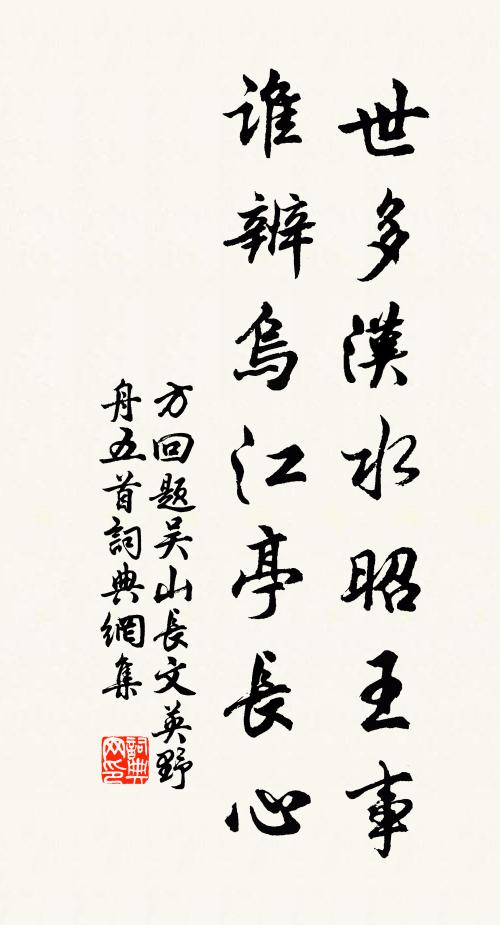 世多漢水昭王事
誰辨烏江亭長心
方回題吴山長文英野
舟五首詞典網集
詞典網印